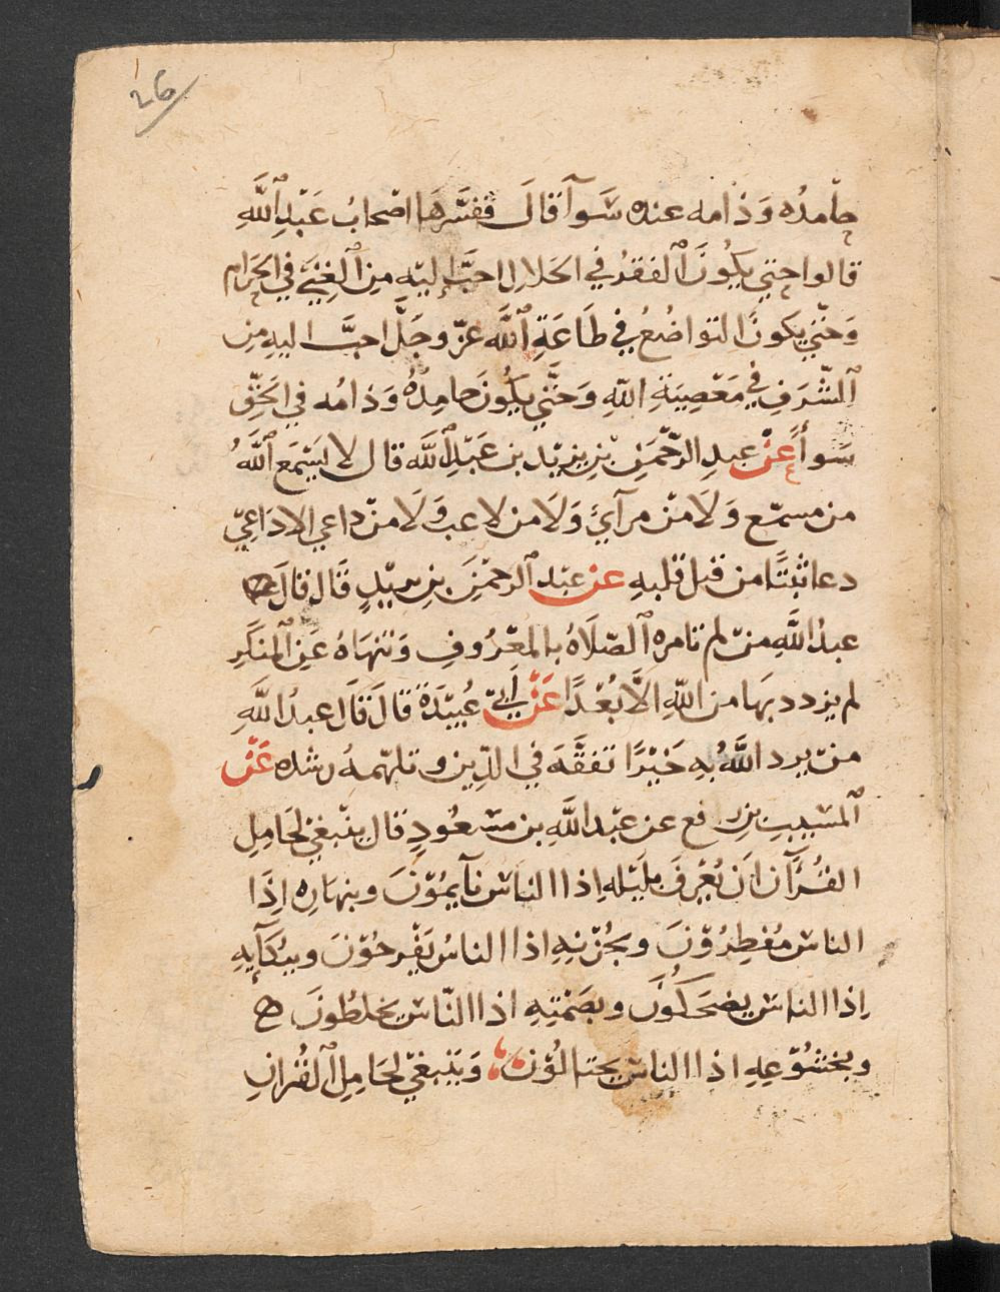 26
حامدُه وَذامه عنده سَوآ قالَ ففسَّرهَا اصْحابُ عَبْدِ ٱللَّهِ
قالوا حتي يكُونَ ٱلفقرُ في الحَلالِ احبَّ اليْهِ مِنَ ٱلغِنَي في الحَرام
وَحَتّي يكونَ التواضُعُ في طَاعَةِ ٱللَّه عزّ وجَلَّ احبَّ اليهِ مِن
ٱلشّرَفِ فِي مَعْصِيَةِ اللّهِ وَحَتَّي يكُونَ حامِدُهُ وَذامُه في الحَقِّ
سَوأً عَنْ عبدِ الرَّحْمَنِ بْنِ يزيْد بن عَبْدِ ٱللَّه قال لا يَسْمَع ٱللَّهُ
من مسمّع وَلَا مِنْ مرآيٍ وَلَا من لاعب وَلَا منْ داعي الا دَاعِيٍ
دعا ثبتًا من قبل قلبهِ عن عبْد ٱلرحمْنِ بنِ يزيْدٍ قَال قالَ
عبدُ اللَّهِ منْ لم تامره ٱلصّلَاهُ بالمعْرُوفِ وَتنْهَاهُ عَنِ ٱلمنكَرِ
لم يزدد بهَا من اللّهِ الاَّ بُعْدًا عَنْ أَبيْ عُبيْدَةَ قَالَ قَالَ عبدُ اللَّهِ
منْ يرد اللَّهُ بِهِ خَيْرًا تفقَّهَ في الدِّينِ وتلهّمهُ رشده عَنْ
ٱلمسَيبِ بنِ رافع عن عبْد اللَّهِ بن مسْعُودٍ قال ينْبغيْ لحَامِلِ
القُرآنِ اَنْ يُعْرفَ بلَيْله اِذا الناسْ نآيمُوْنَ وبنهَارِه اِذَا
الناسْ مُفطِرُوْنَ وبحُزْنِهِ اذا الناسُ يَفْرحُوْنَ وببُكَآيِهِ
اِذا الناسْ يضحَكُوْنَ وبصَمْتِهِ اذا النّاسْ يخلطُونَ
وبخشُوْعِهِ اذا الناسْ يختالُوْنَ وَينْبَغيْ لحَامِلِ ٱلقُرانِ